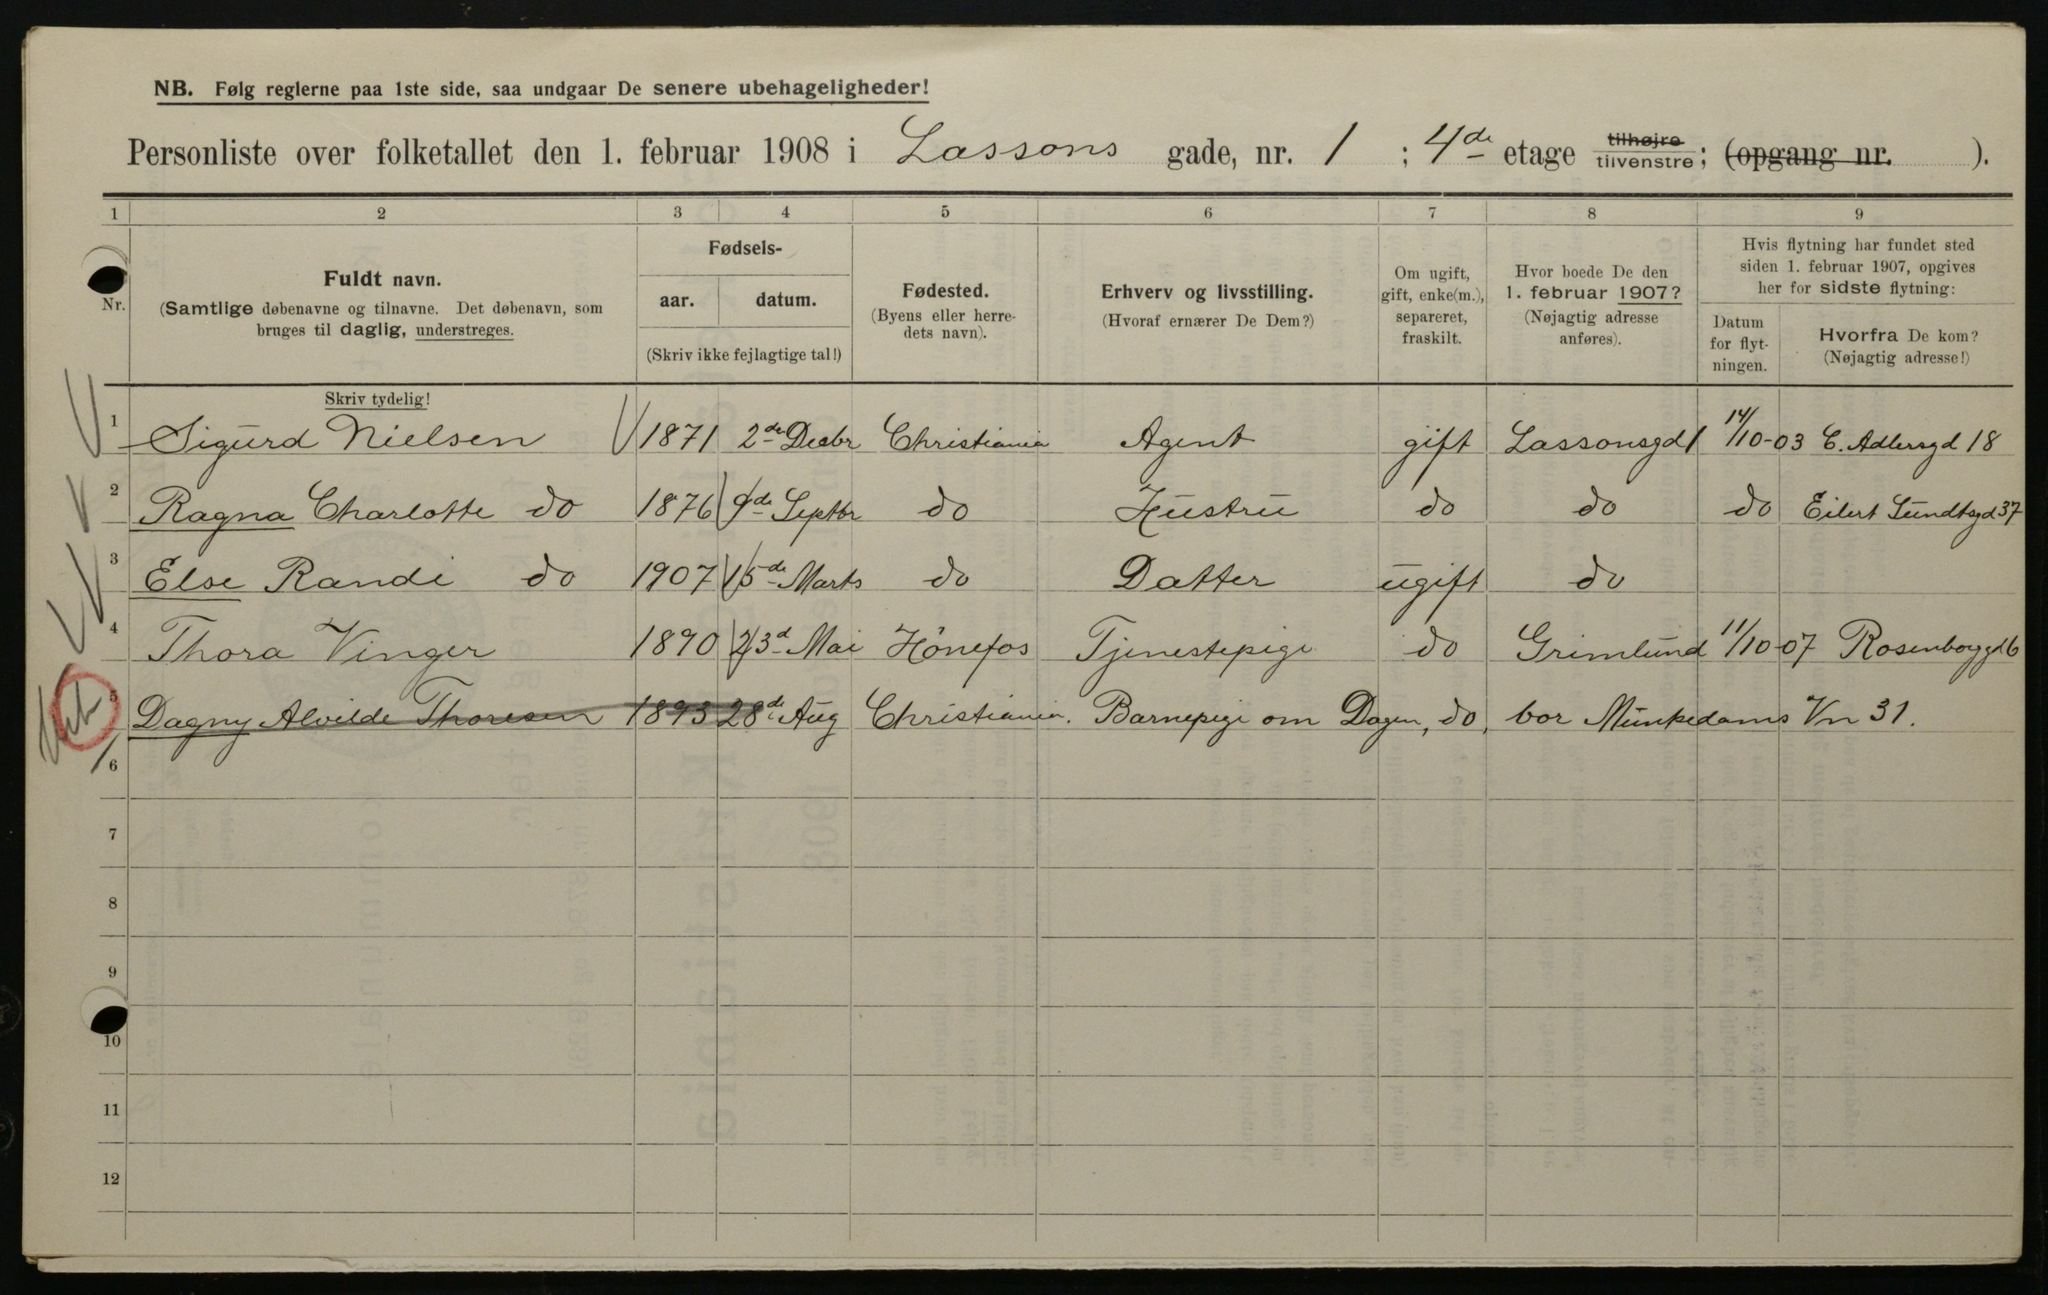 NB. Følg reglerne paa 1ste side, saa undgaar De senere ubehageligheder!
Personliste over folketallet den 1. februar 1908 i Lassons gade, nr. 1 ; 4de etage tilhøjre tilvenstre; (opgang nr. ).
1 2 3 4 5 6 7 8 9
Nr.
Fuldt navn.
(Samtlige døbenavne og tilnavne. Det døbenavn, som
bruges til daglig, understreges.
Skriv tydelig!
Fødsels-
aar. datum.
(Skriv ikke fejlagtige tal!)
Fødested.
(Byens eller herre-
dets navn).
Erhverv og livsstilling.
(Hvoraf ernærer De Dem?)
Om ugift,
gift, enke(m.),
separeret,
fraskilt.
Hvor boede De den
1. februar 1907?
(Nøjagtig adresse
anføres).
Hvis flytning har fundet sted
siden 1. februar 1907, opgives
her for sidste flytning:
Datum
for flyt-
ningen.
Hvorfra De kom?
(Nøjagtig adresse!)
1 Sigurd Nielsen 1871 2de Decbr Christiania Agent gift Lassonsgd 1 14/10-03 C. Adlersgd 18
2 Ragna Charlotte do 1876 9de Septbr do Hustru do do do Eilert Sundtsgd 37
3 Else Randi do 1907 15de Marts do Datter ugift do
4 Thora Vinger 1890 23d Mai Hönefos Tjenestepige do Grimlund 11/10-07 Rosenborggd 6
5 Dagny Alvilde Thoresen 1893 28de Aug Christiania. Barnepige om Dagen, do, bor Munkedams Vn 31.
6
7
8
9
10
11
12